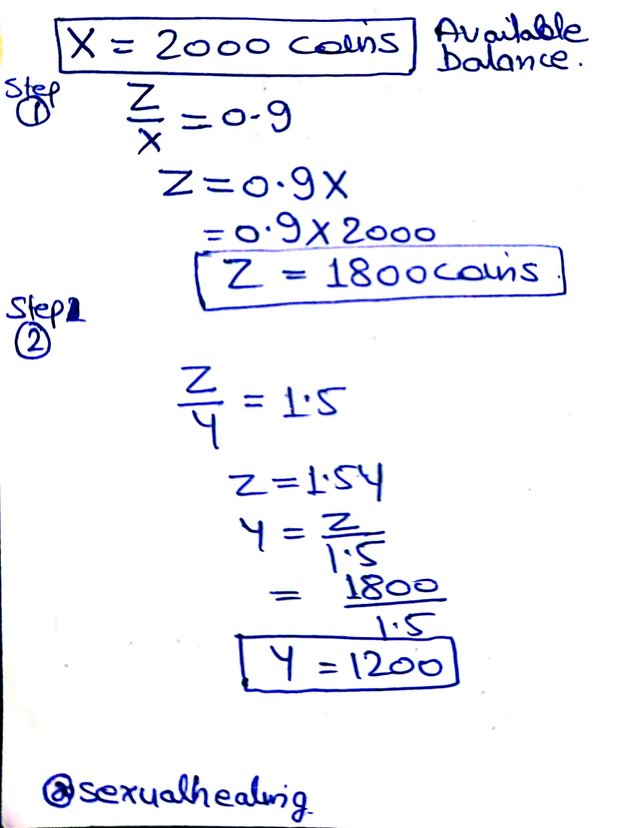 X = 2000 coins Available balance.
Step ①
Z/X = 0.9
Z = 0.9X
= 0.9 X 2000
Z = 1800 coins.
Step
②
Z/Y = 1.5
Z = 1.5Y
Y = Z/1.5
= 1800/1.5
Y = 1200
@sexualhealing